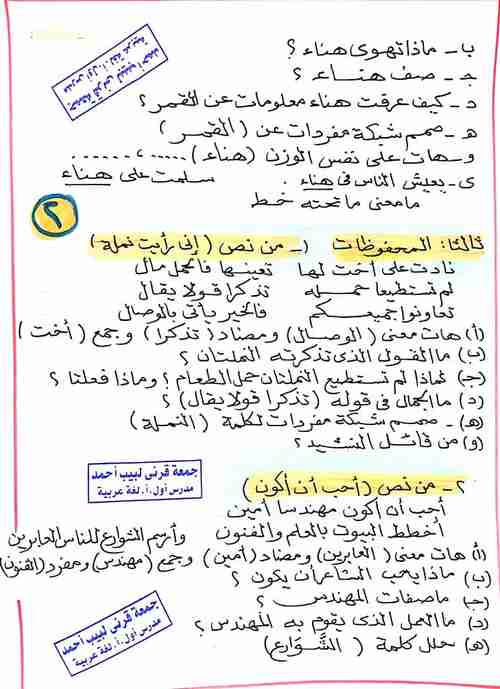 ب - ماذا تهوى هناء ؟
جـ - صف هناء ؟
د - كيف عرفت هناء معلومات عن القمر ؟
هـ - صمم شبكة مفردات عن (القمر)
و - هات على نفس الوزن (هناء) ...... ، ......
ى - يعيش الناس فى هناء . سلمت على هناء
ما معنى ما تحته خط
٢
ثالثا: المحفوظات ١- من نص (إنى رأيت نملة)
نادت على أخت لها تعينها فالحمل مال
لم تستطيعا حمله تذكرا قولا يقال
تعاونوا جميعكم فالخير يأتى بالوصال
(أ) هات معنى (الوصال) ومضاد (تذكرا) وجمع (أخت)
(ب) ما المقول الذى تذكرته النملتان ؟
(جـ) لماذا لم تستطيع النملتان حمل الطعام ؟ وماذا فعلتا ؟
(د) ما الجمال فى قوله (تذكرا قولا يقال) ؟
(هـ) - صمم شبكة مفردات لكلمة (النملة)
(و) من قائل النشيد ؟
جمعة قرنى لبيب أحمد
مدرس أول.أ. لغة عربية
٢ - من نص (أحب أن أكون)
أحب أن أكون مهندسا أمين
أخطط البيوت بالعلم والفنون وأرسم الشوارع للناس العابرين
(أ) هات معنى (العابرين) ومضاد (أمين) وجمع (مهندس) ومفرد (الفنون)
(ب) ماذا يحب الشاعر أن يكون ؟
(جـ) ما صفات المهندس ؟
(د) ما العمل الذى يقوم به المهندس ؟
(هـ) حلل كلمة (الشَّوَارع)
جمعة قرنى لبيب أحمد
مدرس أول.أ. لغة عربية
جمعة قرنى لبيب أحمد
مدرس أول.أ. لغة عربية